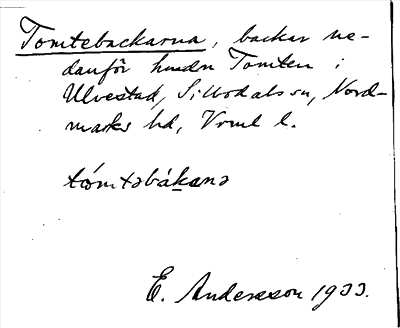 Tomtebackarna, backar ne-
danför hmdn Tomten i
Ulvestad, Sillbodals sn, Nord-
marks hd, Vrml l.
tomtəbákanə
E. Andersson 1933.